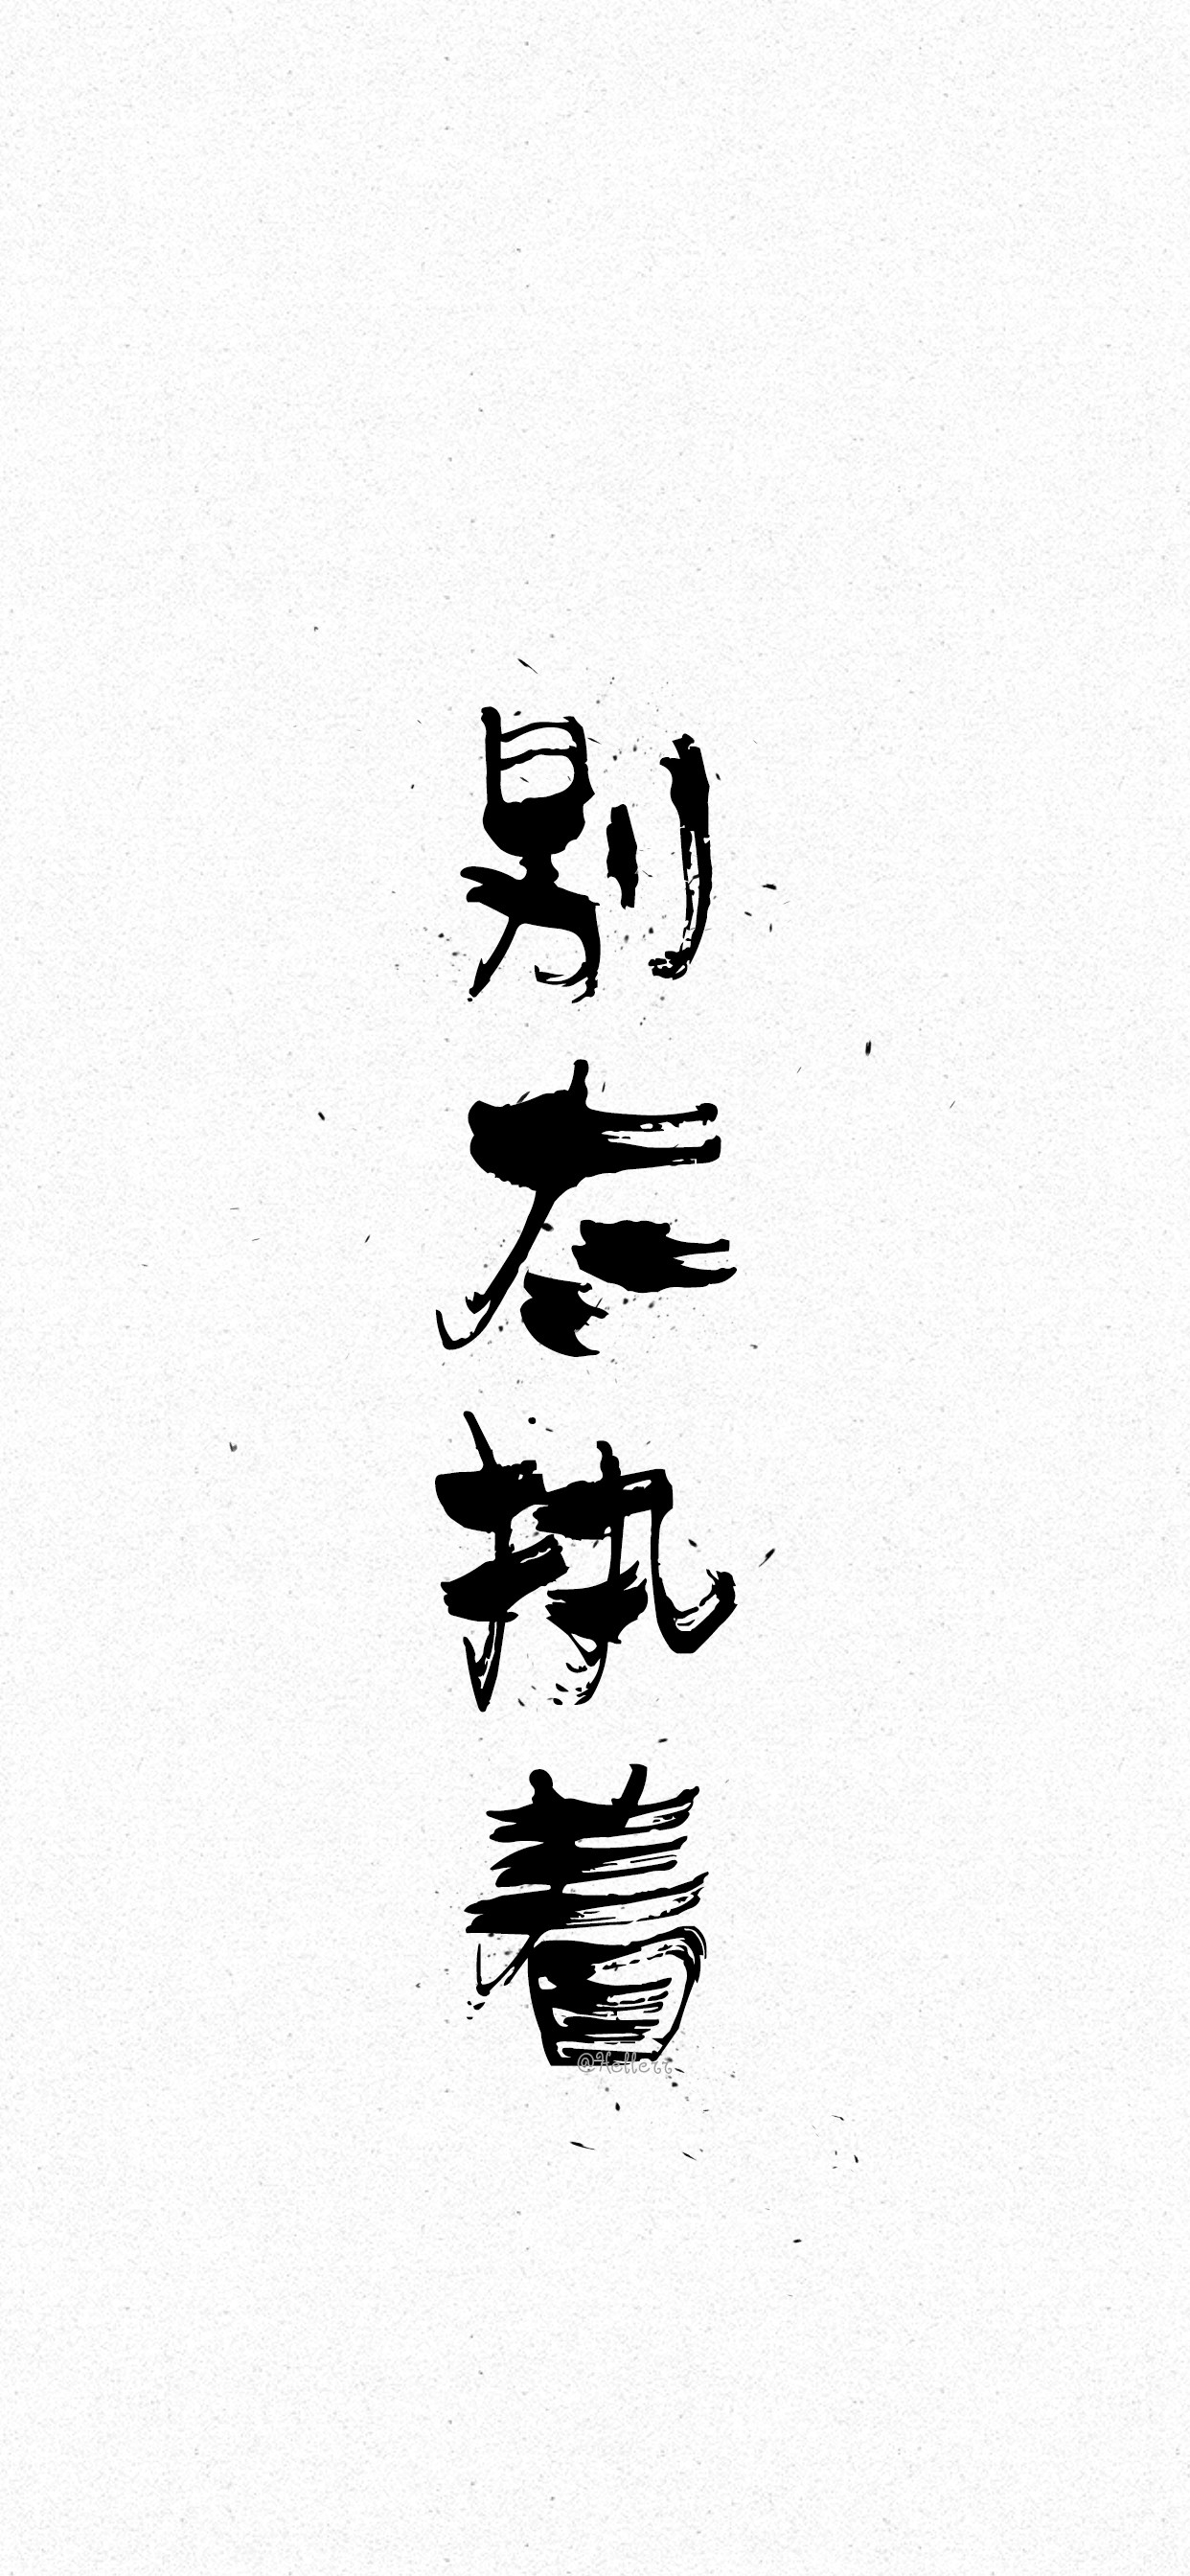 别太执着
@Hellerr